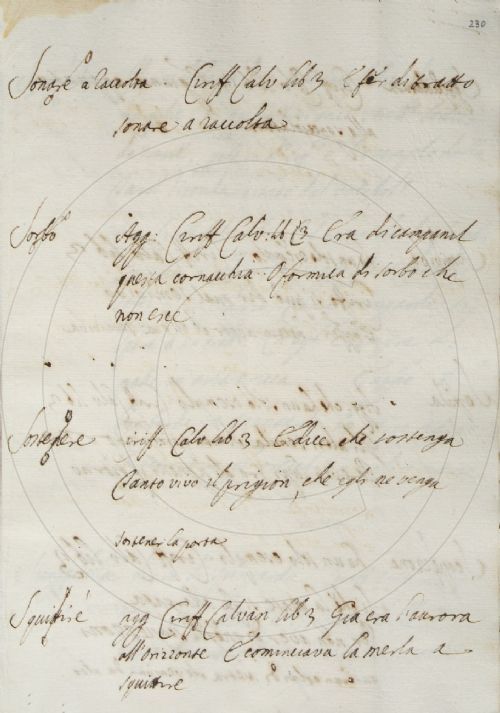 230
Sonare a raccolta Ciriff Calv lib 3 E fer di tratto
sonare a raccolta
Sorbo Agg: Ciriff Calv: lib 3 Era di campanil
questa cornacchia O formica di sorbo che
non esce
Sostenere Ciriff Calv lib 3 E dice che sostenga
Tanto vivo il prigion, che egli ne venga
sostener la porta
Squittire agg Ciriff Calvan lib 3 Gia era l'aurora
all'orizzonte E cominciava la merla a
squittire